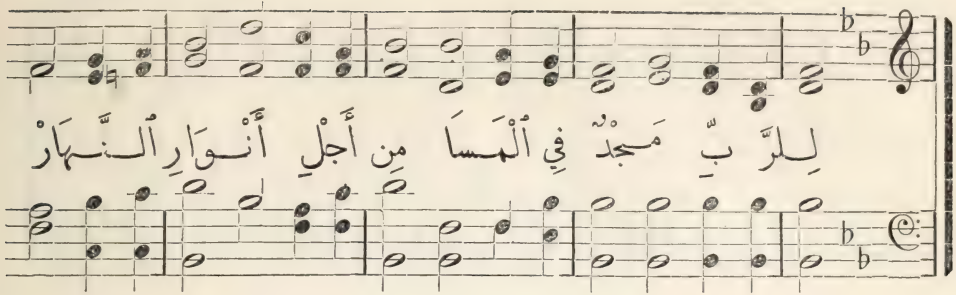 لِلرَّ بِّ مَجْدٌ فِي ٱلْمَسا مِن أَجْلِ أَنْوَارِ ٱلنَّهَارْ